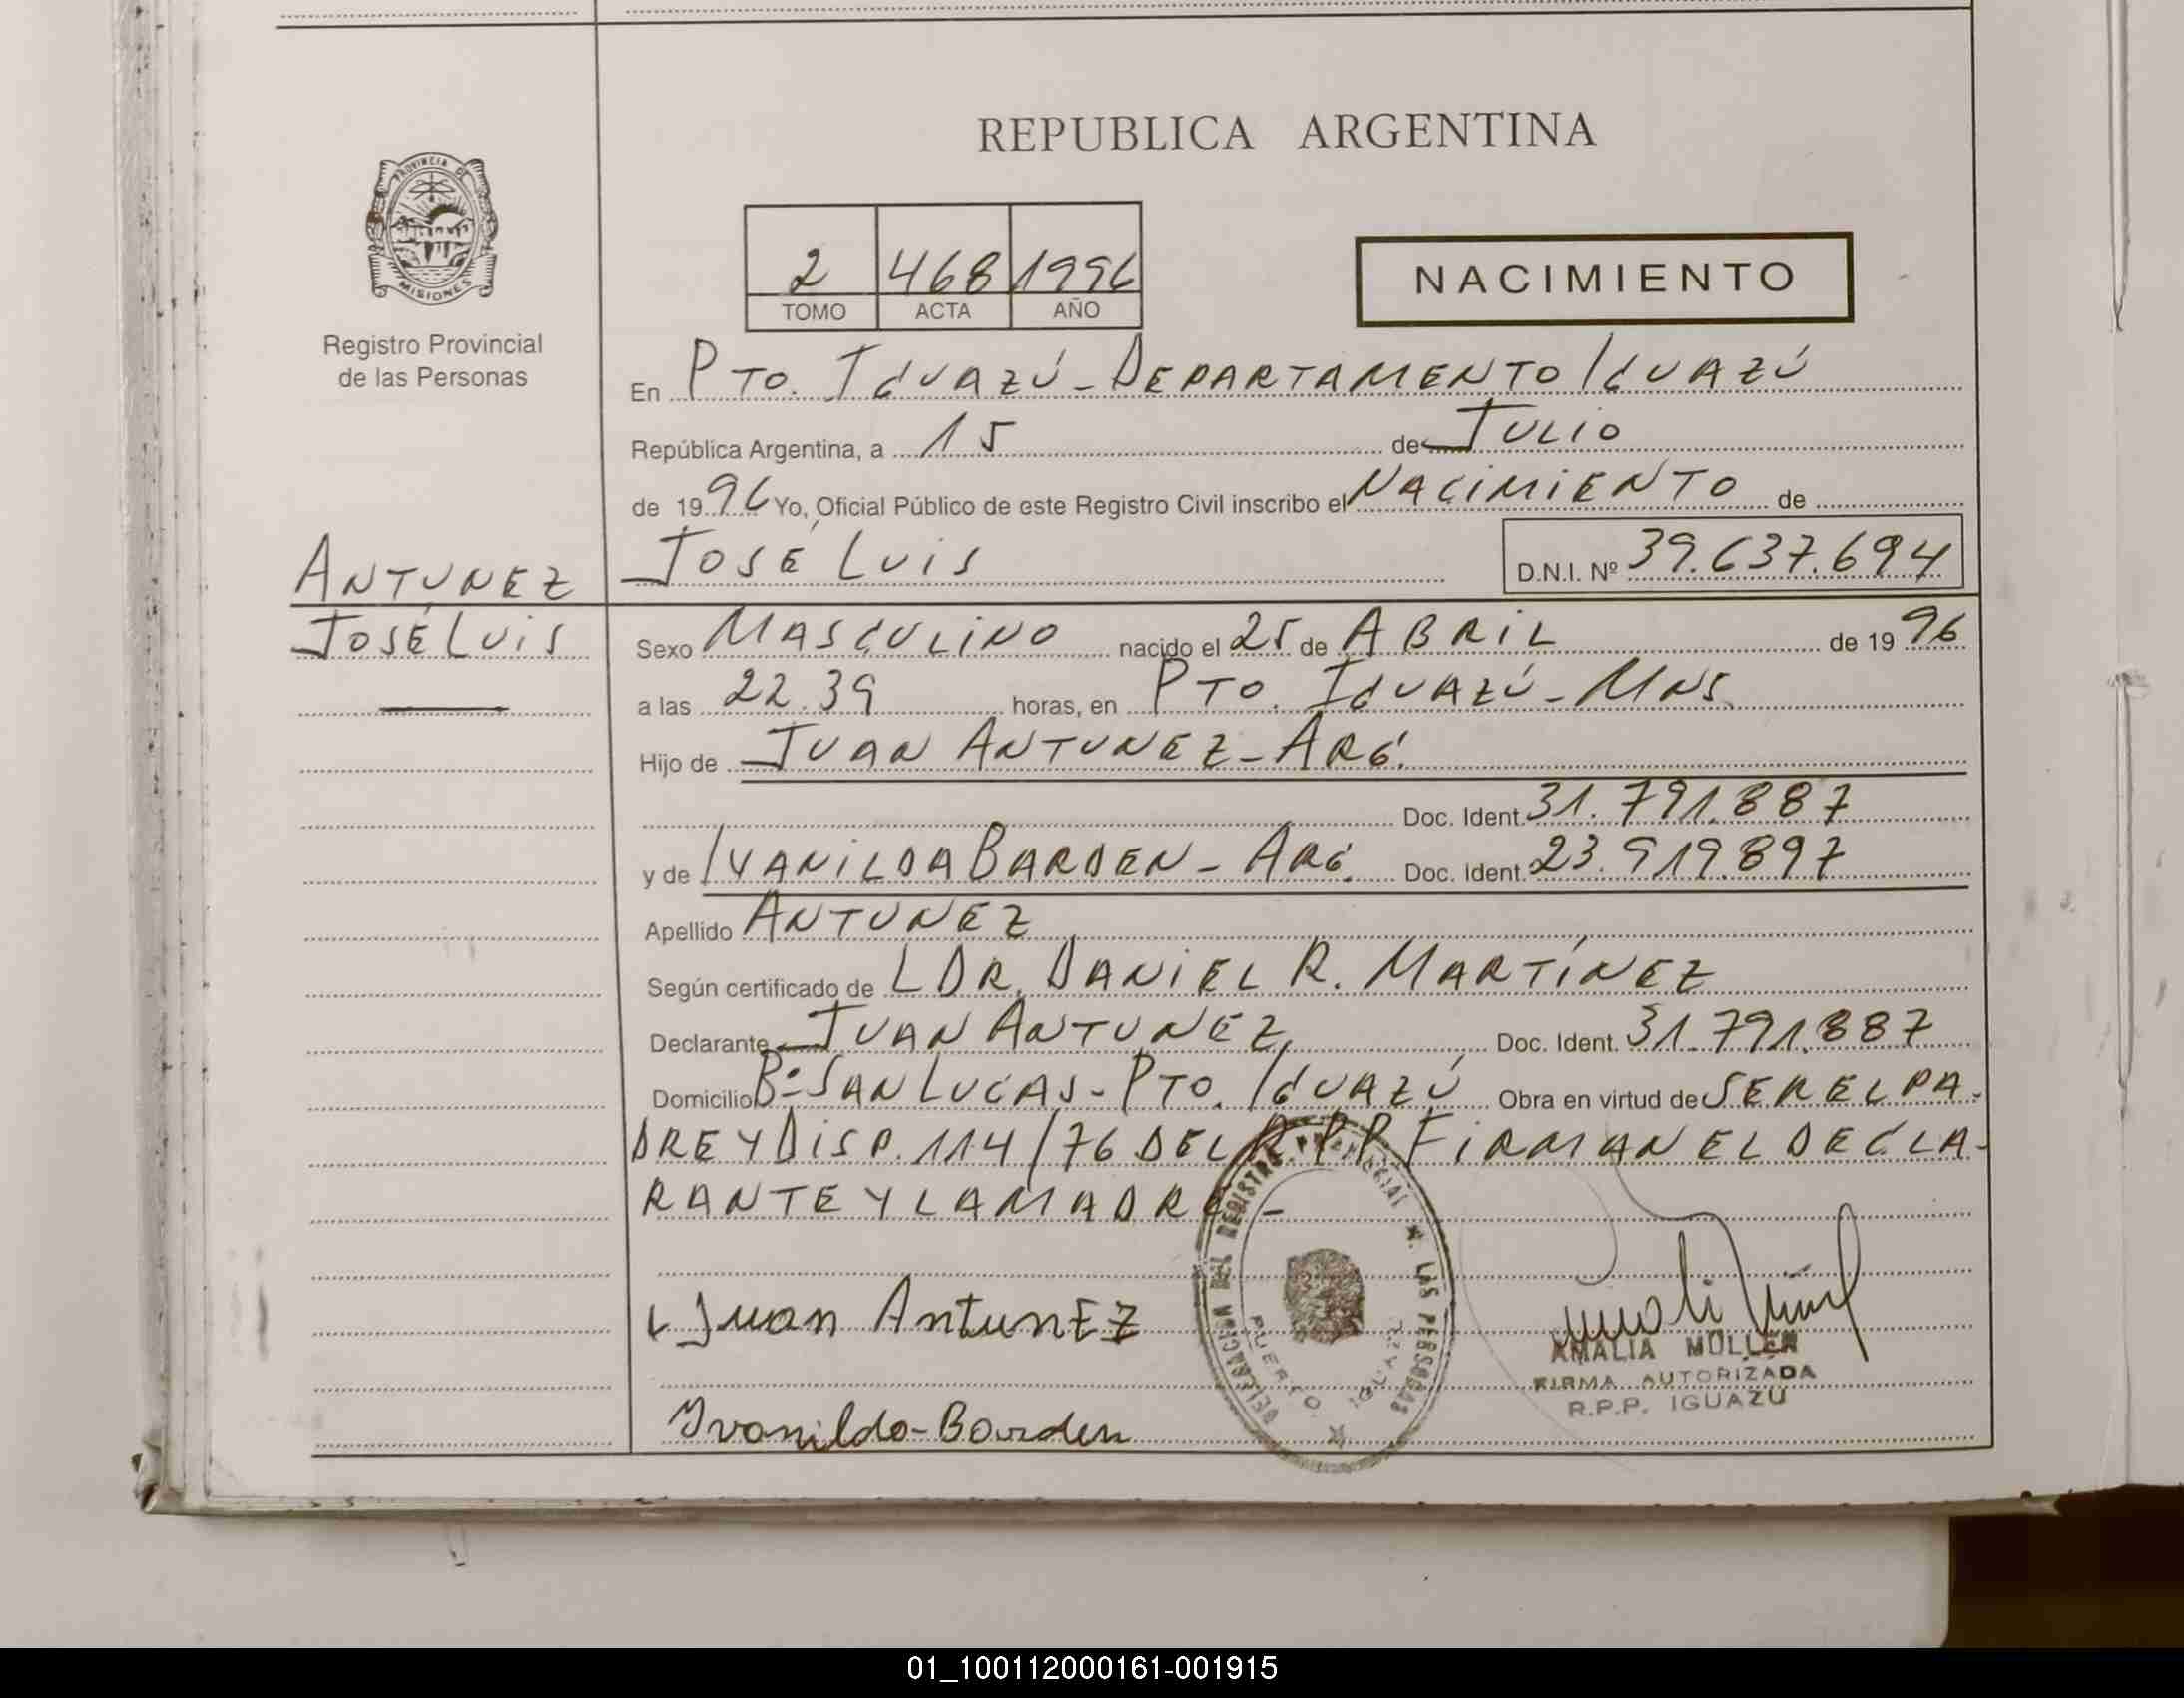 REPUBLICA ARGENTINA
PROVINCIA DE
MISIONES
Registro Provincial
de las Personas
2 468 1996
TOMO ACTA AÑO
NACIMIENTO
En PTO. IGUAZÚ - DEPARTAMENTO IGUAZÚ
República Argentina, a 15 de JULIO
de 1996 Yo, Oficial Público de este Registro Civil inscribo el NACIMIENTO de
ANTUNEZ
JOSÉ LUIS
JOSÉ LUIS D.N.I. Nº 39.637.694
Sexo MASCULINO nacido el 25 de ABRIL de 1996
a las 22.39 horas, en PTO. IGUAZÚ - MNS.
Hijo de JUAN ANTUNEZ - ARG.
Doc. Ident. 31.791.887
y de IVANILDA BARDEN - ARG. Doc. Ident. 23.919.897
Apellido ANTUNEZ
Según certificado de L DR. DANIEL R. MARTÍNEZ
Declarante JUAN ANTUNEZ Doc. Ident. 31.791.887
Domicilio Bº SAN LUCAS - PTO. IGUAZÚ Obra en virtud de SER EL PA-
DRE Y DISP. 114/76 DEL R.P.P. FIRMAN EL DECLA-
RANTE Y LA MADRE -
Juan AntunEZ
Ivanilda - Barden
DELEGACION DEL REGISTRO PROVINCIAL DE LAS PERSONAS
PUERTO IGUAZU
AMALIA MÜLLER
FIRMA AUTORIZADA
R.P.P. IGUAZU
01_100112000161-001915